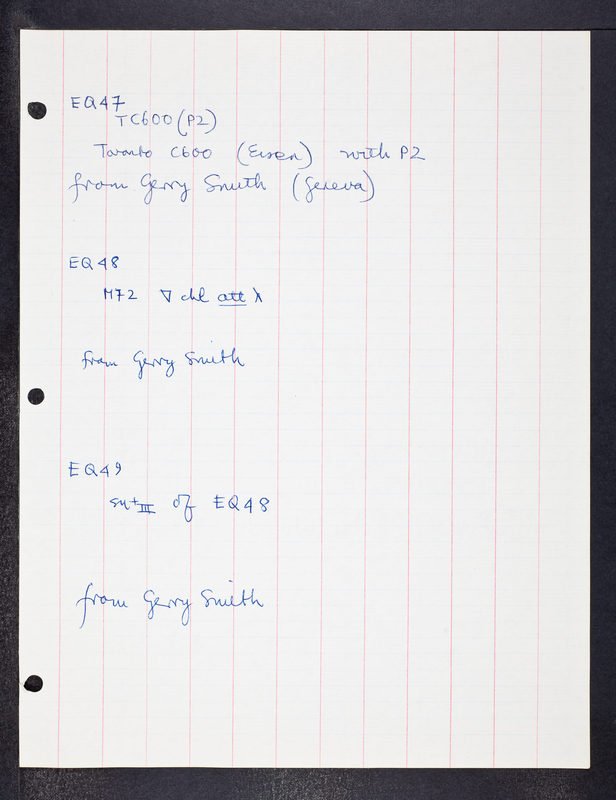 EQ47
TC600 (P2)
Toronto C600 (Eisen) with P2
from Gerry Smith (Geneva)
EQ48
M72 ∇ chl att λ
from Gerry Smith
EQ49
su+III of EQ48
from Gerry Smith